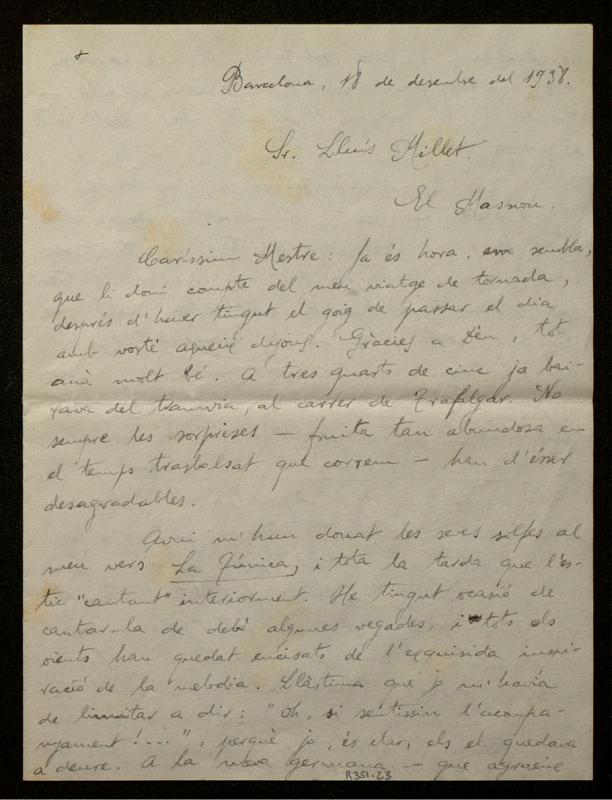 Barcelona, 18 de desembre del 1938.
Sr. Lluís Millet.
El Masnou.
Caríssim Mestre: Ja és hora, em sembla,
que li doni compte del meu viatge de tornada,
després d'haver tingut el goig de passar el dia
amb vostè aqueix dijous. Gràcies a Déu, tot
anà molt bé. A tres quarts de cinc ja bai-
xava del tramvia, al carrer de Trafalgar. No
sempre les sorpreses — fruita tan abundosa en
el temps trasbalsat que correm — han d'ésser
desagradables.
Avui m'han donat les seves solfes al
meu vers La Túnica, i tota la tarda que l'es-
tic "cantant" interiorment. He tingut ocasió de
cantar-la de debò algunes vegades, i tots els
oients han quedat encisats de l'exquisida inspi-
ració de la melodia. Llàstima que jo m'havia
de limitar a dir: "Oh, si sentissin l'acompa-
nyament!...", perquè jo, és clar, els el quedava
a deure. A la meva germana — que agraeix
R351-23